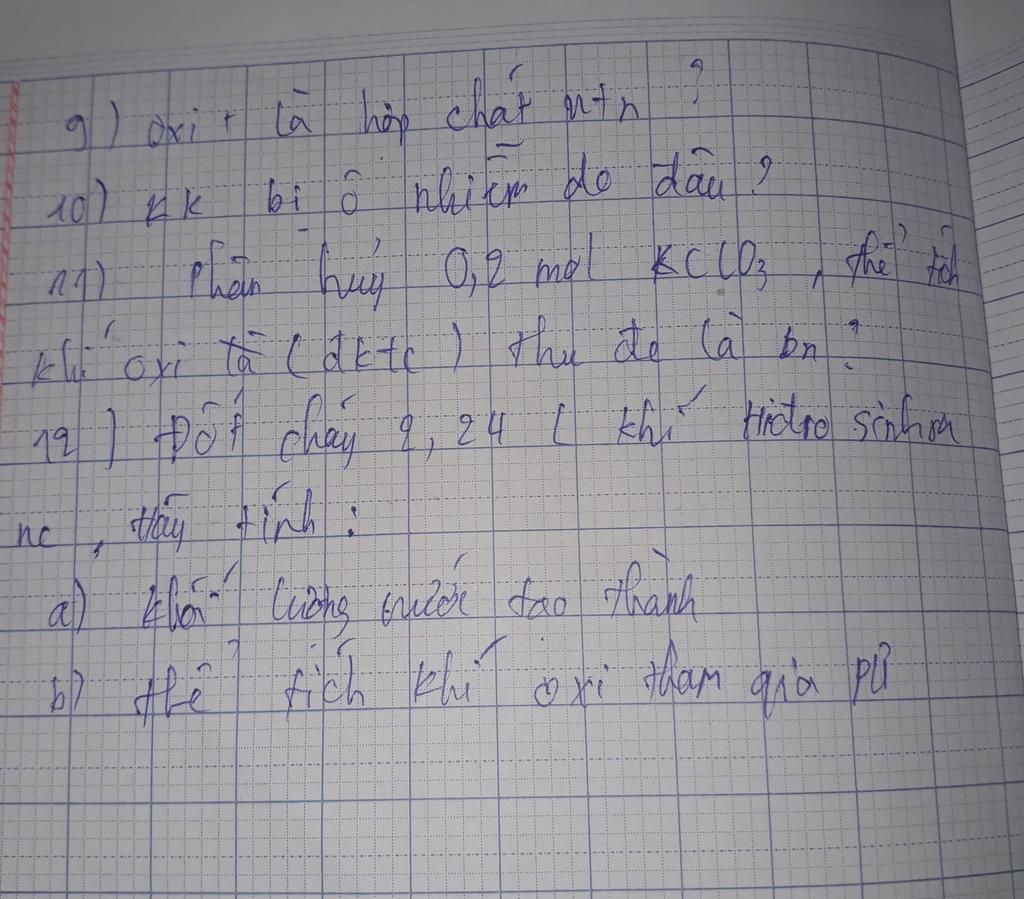 9) oxit là hợp chất ntn ?
10) KK bị ô nhiễm do đâu ?
11) Phân huỷ 0,2 mol KClO3, thể tích
khí oxi (đktc) thu đc là bn ?
12) Đốt cháy 2,24 l khí Hidro sinh ra
nc, Hãy tính :
a) khối lượng nước tạo thành
b) thể tích khí oxi tham gia PƯ